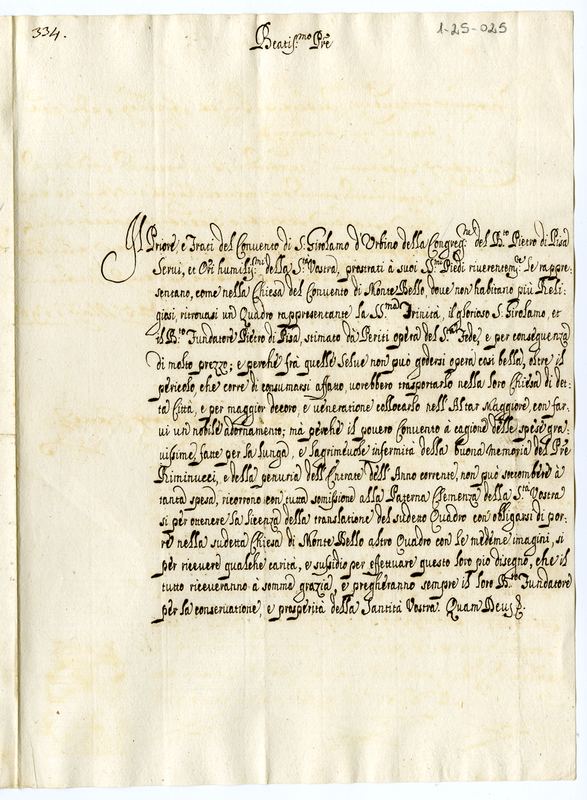 334.
1-25-025
Beatis.mo Prē
Il Priore, e Frati del Convento di S. Girolamo d'Urbino della Congreg.ne del B.to Pietro di Pisa
Servi, et Ori humilis.mi della S.tà Vostra, prostrati à suoi SS.mi Piedi riverentem.te Le rappre-
sentano, come nella Chiesa del Convento di Monte Bello, dove non habitano più Reli-
giosi, ritrovasi un Quadro rappresentante la SS.ma Trinità, il glorioso S. Girolamo, et
il B.to Fundatore Pietro di Pisa, stimato da Periti opera del Fede, e per conseguenza
di molto prezzo; e perché frà quelle Selve non può godersi opera così bella, oltre il
pericolo che corre di consumarsi affatto, vorebbero trasportarlo nella loro Chiesa di det-
ta Città, e per maggior decoro e veneratione collocarlo nell'Altar Maggiore, con far-
vi un nobile adornamento; mà perché il povero Convento à cagione delle spese gra-
vissime fatte per la lunga, e lagrimevole infermità della buona memoria del Prē
Riminucci, e della penuria dell'Entrate dell'Anno corrente, non può soccombere à
tanta spesa, ricorrono con tutta somissione alla Paterna Clemenza della S.tà Vostra
si per ottenere la licenza della translatione del sudetto Quadro con obligarsi di por-
re nella sudetta Chiesa di Monte Bello altro Quadro con le medeme imagini, si
per ricevere qualche carità, e sussidio per effettuare questo loro pio disegno, che il
tutto riceveranno à somma grazia, e pregheranno sempre il loro B.to Fundatore
per la conservatione, e prosperità della Santità Vostra. Quam Deus